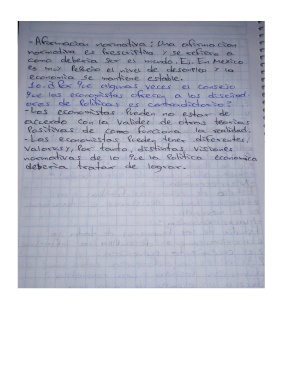 - Afirmacion normativa: Una afirmacion
normativa es prescriptiva y se refiere a
como deberia ser el mundo. Ej. En Mexico
es muy pequeño el nivel de desempleo y la
economia se mantiene estable.
10. ¿Por que algunas veces el consejo
que los economistas ofrecen a los diseñad
ores de politicas es contradictorio?
- Los economistas pueden no estar de
acuerdo con la validez de otras teorias
positivas de como funciona la realidad.
- Los economistas pueden tener diferentes,
valores y, por tanto, distintas visiones
normativas de lo que la politica economica
deberia tratar de lograr.